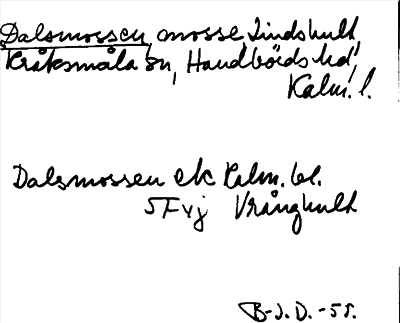 Dalsmossen, mosse, Lindshult,
Kråksmåla sn, Handbörds hd,
Kalm. l.
Dalsmossen ek Kalm. bl.
5F vj Vrånghult
B-J.D.-55.